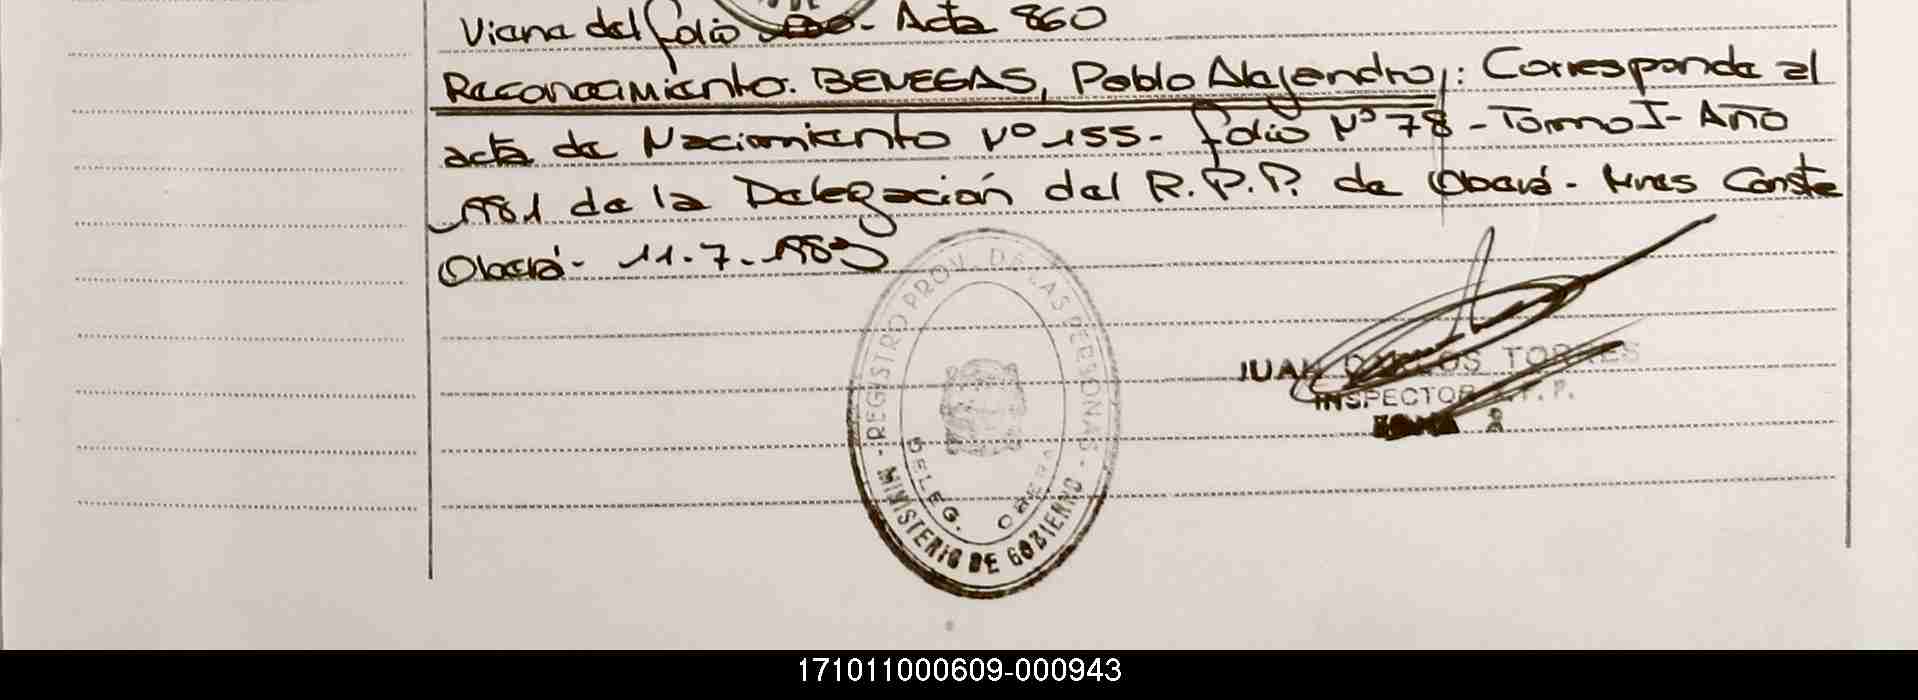 Viene del folio Acta 860
Reconocimiento. BENEGAS, Pablo Alejandro: Corresponde al
acta de Nacimiento Nº 155 - folio Nº 78 - Tomo I - Año
1981 de la Delegación del R.P.P. de Oberá - Mnes Conste
Oberá - 11.7.1983
- REGISTRO PROV. DE LAS PERSONAS -
MINISTERIO DE GOBIERNO
DELEG. OBERA
JUAN CARLOS TORRES
INSPECTOR R.P.P.
2
171011000609-000943